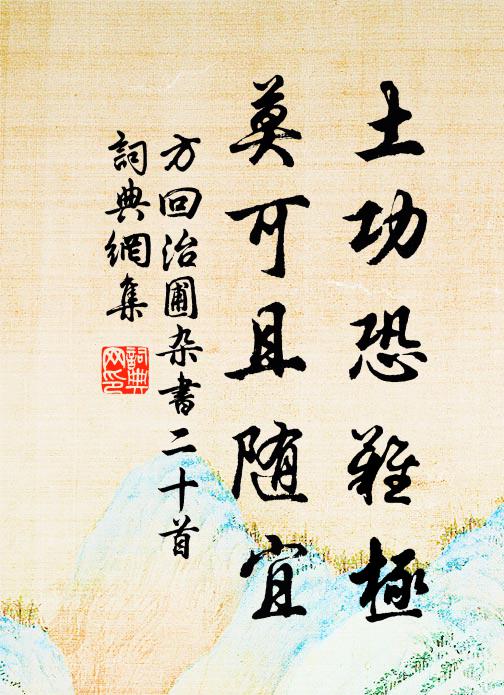 土功恐難極
莫可且随宜
方回治圃杂書二十首
詞典網集
詞典網印